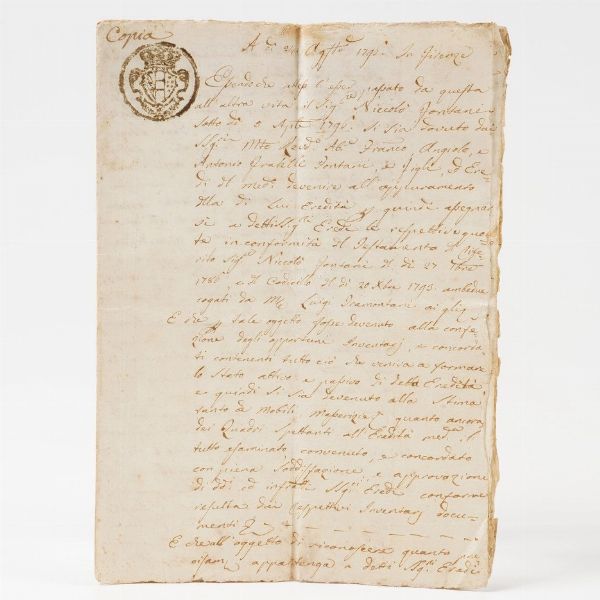 Copia
A dì 24 Agsto 1795 In Firenze
Essendo che fino l'esser passato da questa
all'altra vita il Sigre Niccolò Fontani
sotto dì 5 Aple 1795. Si sia dovuto dai
Sigri Mto Revdo Abe Franco, Angiolo, e
Antonio Fratelli Fontani, e Figli, ed Ere
di del Medo devenire all'appuramento
della di Lui Eredità, e quindi assegnar
si a detti Sigri Eredi le respettive quo
te in conformità del Testamento del rife
rito Sigre Niccolò Fontani del dì 27
1786, e del Codicillo del dì 20 Xbre 1793. ambedue
rogati da Mr Luigi Tramontani
E che tale oggetto fosse devenuto alla confe
zione degli opportuni Inventarj, e concorda
ti contenenti tutto ciò che veniva a formare
lo Stato attivo e passivo di detta Eredità
e quindi si sia devenuto alla Stima
tanto de Mobili Masserizie, quanto ancora
dei Quadri Spettanti all'Eredità meda il
tutto esaminato, convenuto, e concordato
con piena soddisfazione, e approvazione
di dti ed infratti Sigri Eredi conforme
resulta dai respettivi Inventarj docu
menti
E che all'oggetto di riconoscere quanto
appartenga a detti Sigri Eredi